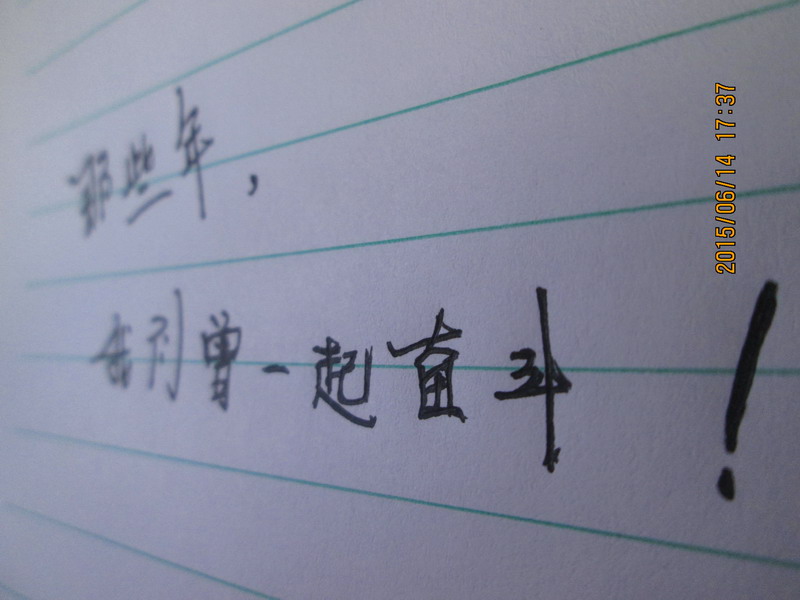 那些年，
我们曾一起奋斗！
2015/06/14 17:37